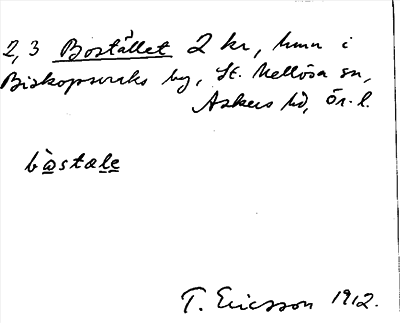 2,3 Bostället 2 kr, hmn i
Biskopsvraks by, St. Mellösa sn,
Askers hd, Ör. l.
bòastæle
T. Ericsson 1912.